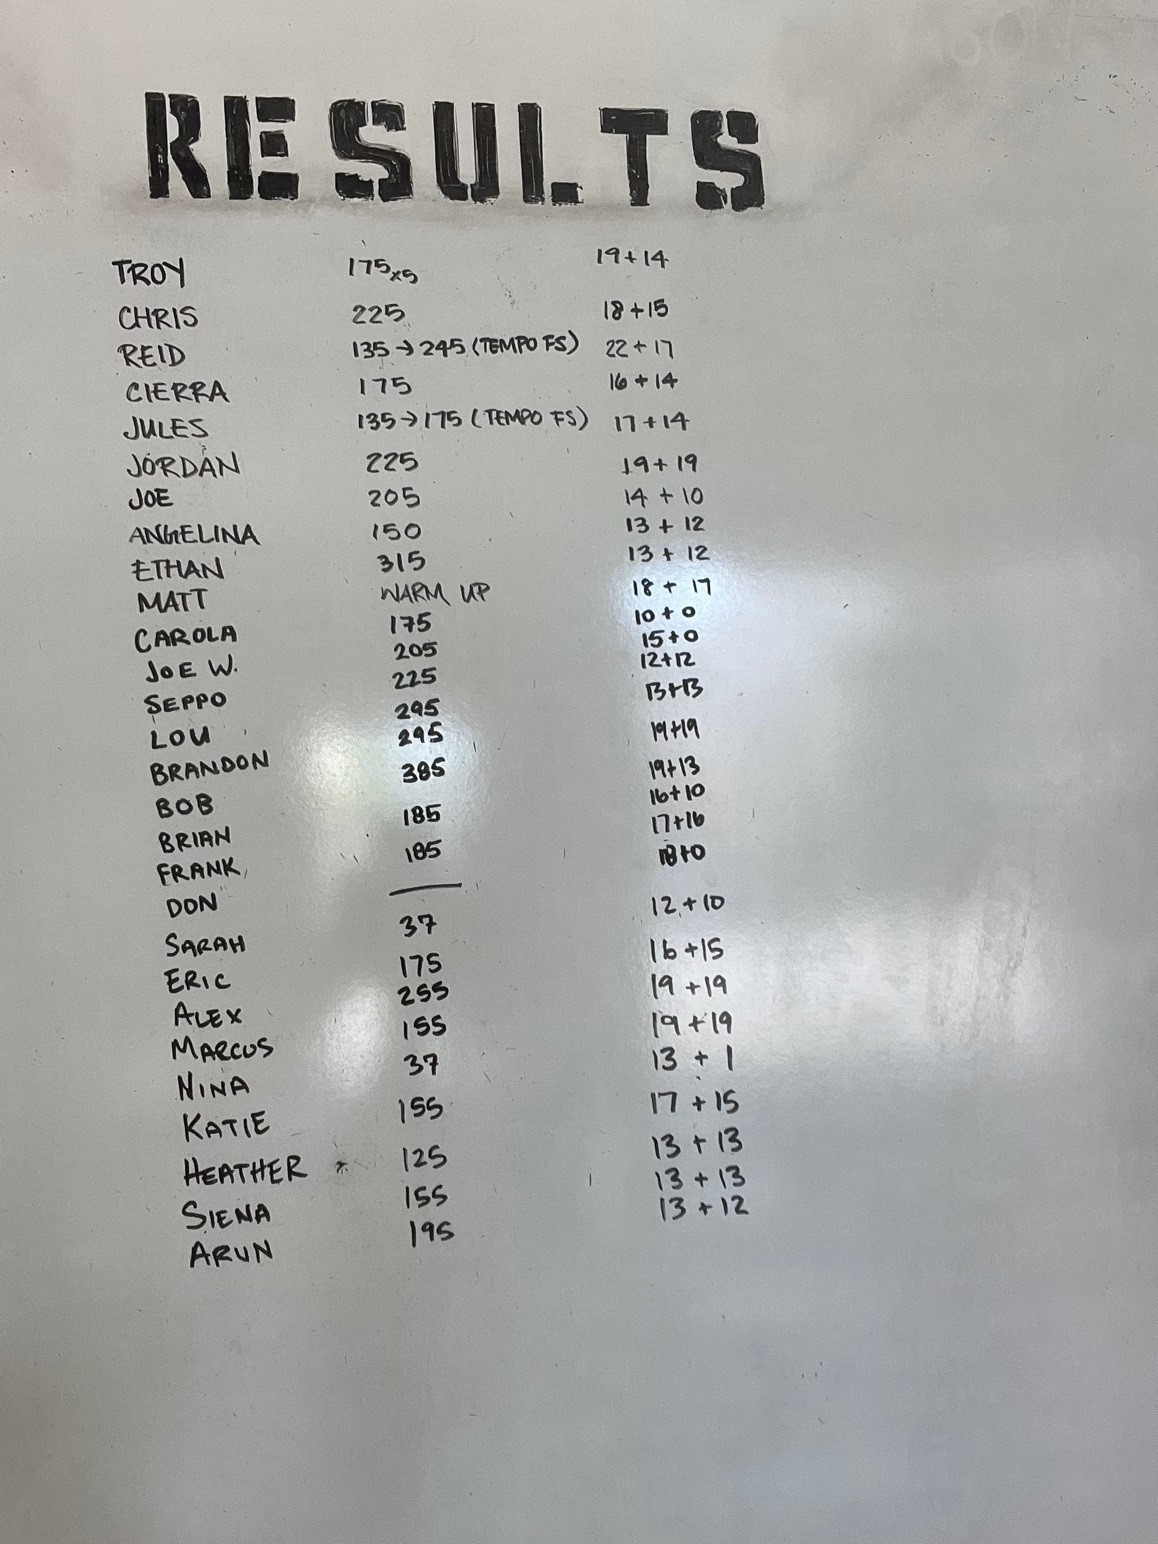 RESULTS
TROY 175x5 19+14
CHRIS 225 18+15
REID 135→245 (TEMPO FS) 22+17
CIERRA 175 16+14
JULES 135→175 (TEMPO FS) 17+14
JORDAN 225 19+19
JOE 205 14+10
ANGELINA 150 13+12
ETHAN 315 13+12
MATT WARM UP 18+17
CAROLA 175 10+0
JOE W. 205 15+0
SEPPO 225 12+12
LOU 295 13+13
BRANDON 295 19+19
BOB 385 19+13
BRIAN 185 16+10
FRANK 185 17+16
DON — 18+0
SARAH 37 12+10
ERIC 175 16+15
ALEX 255 19+19
MARCUS 155 19+19
NINA 37 13+1
KATIE 155 17+15
HEATHER 125 13+13
SIENA 155 13+13
ARUN 195 13+12